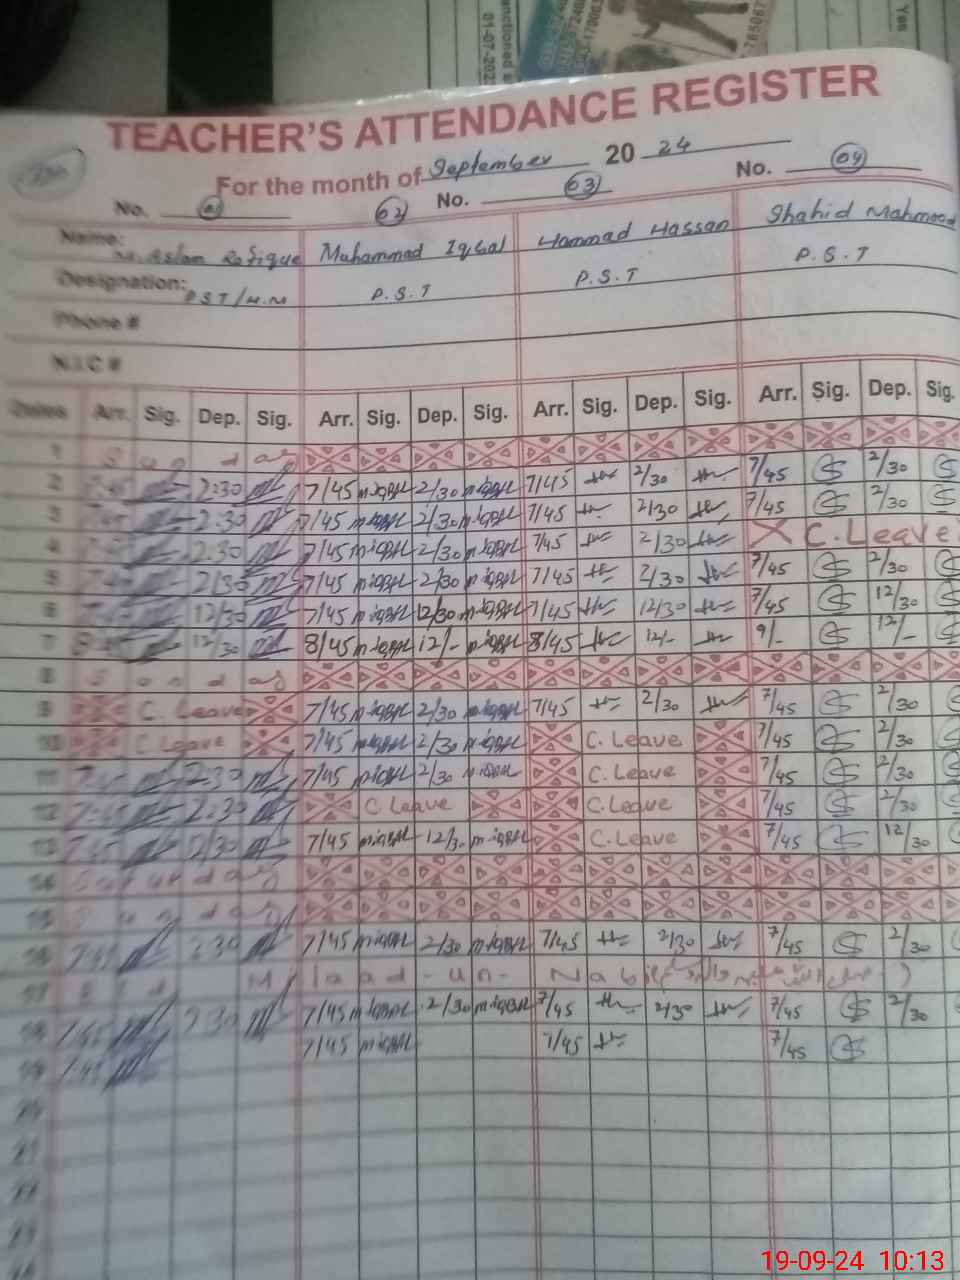 Yes
01-07-202
TEACHER'S ATTENDANCE REGISTER
For the month of September 2024
No. 01 02 No. 03 No. 04
Name: M. Aslam Rafique Muhammad Iqbal Hammad Hassan Shahid Mahmood
Designation: PST/H.M P.S.T P.S.T P.S.T
Phone #
N.I.C #
Dates Arr. Sig. Dep. Sig. Arr. Sig. Dep. Sig. Arr. Sig. Dep. Sig. Arr. Sig. Dep. Sig.
1 Sunday
2 7:45 2:30 7/45 m.iqbal 2/30 m.iqbal 7/45 2/30 7/45 2/30
3 7:45 2:30 7/45 m.iqbal 2/30 m.iqbal 7/45 2/30 7/45 2/30
4 7:45 2:30 7/45 m.iqbal 2/30 m.iqbal 7/45 2/30 C. Leave
5 7:45 2/30 7/45 m.iqbal 2/30 m.iqbal 7/45 2/30 7/45 2/30
6 7:45 12/30 7/45 m.iqbal 12/30 m.iqbal 7/45 12/30 7/45 12/30
7 12/30 8/45 m.iqbal 12/- m.iqbal 8/45 12/- 9/- 12/-
8 Sunday
9 C. Leave 7/45 m.iqbal 2/30 m.iqbal 7/45 2/30 7/45 2/30
10 C. Leave 7/45 m.iqbal 2/30 m.iqbal C. Leave 7/45 2/30
11 7:45 2:30 7/45 m.iqbal 2/30 m.iqbal C. Leave 7/45 2/30
12 7:45 2:30 C. Leave C. Leave 7/45 2/30
13 7:45 7/45 m.iqbal 12/30 m.iqbal C. Leave 7/45 12/30
14 Saturday
15 Sunday
16 7:45 2:30 7/45 m.iqbal 2/30 m.iqbal 7/45 2/30 7/45 2/30
17 Eid Milaad-un-Nabi
18 7:45 2:30 7/45 m.iqbal 2/30 m.iqbal 7/45 2/30 7/45 2/30
19 7:45 7/45 m.iqbal 7/45 7/45
20
21
22
23
19-09-24 10:13